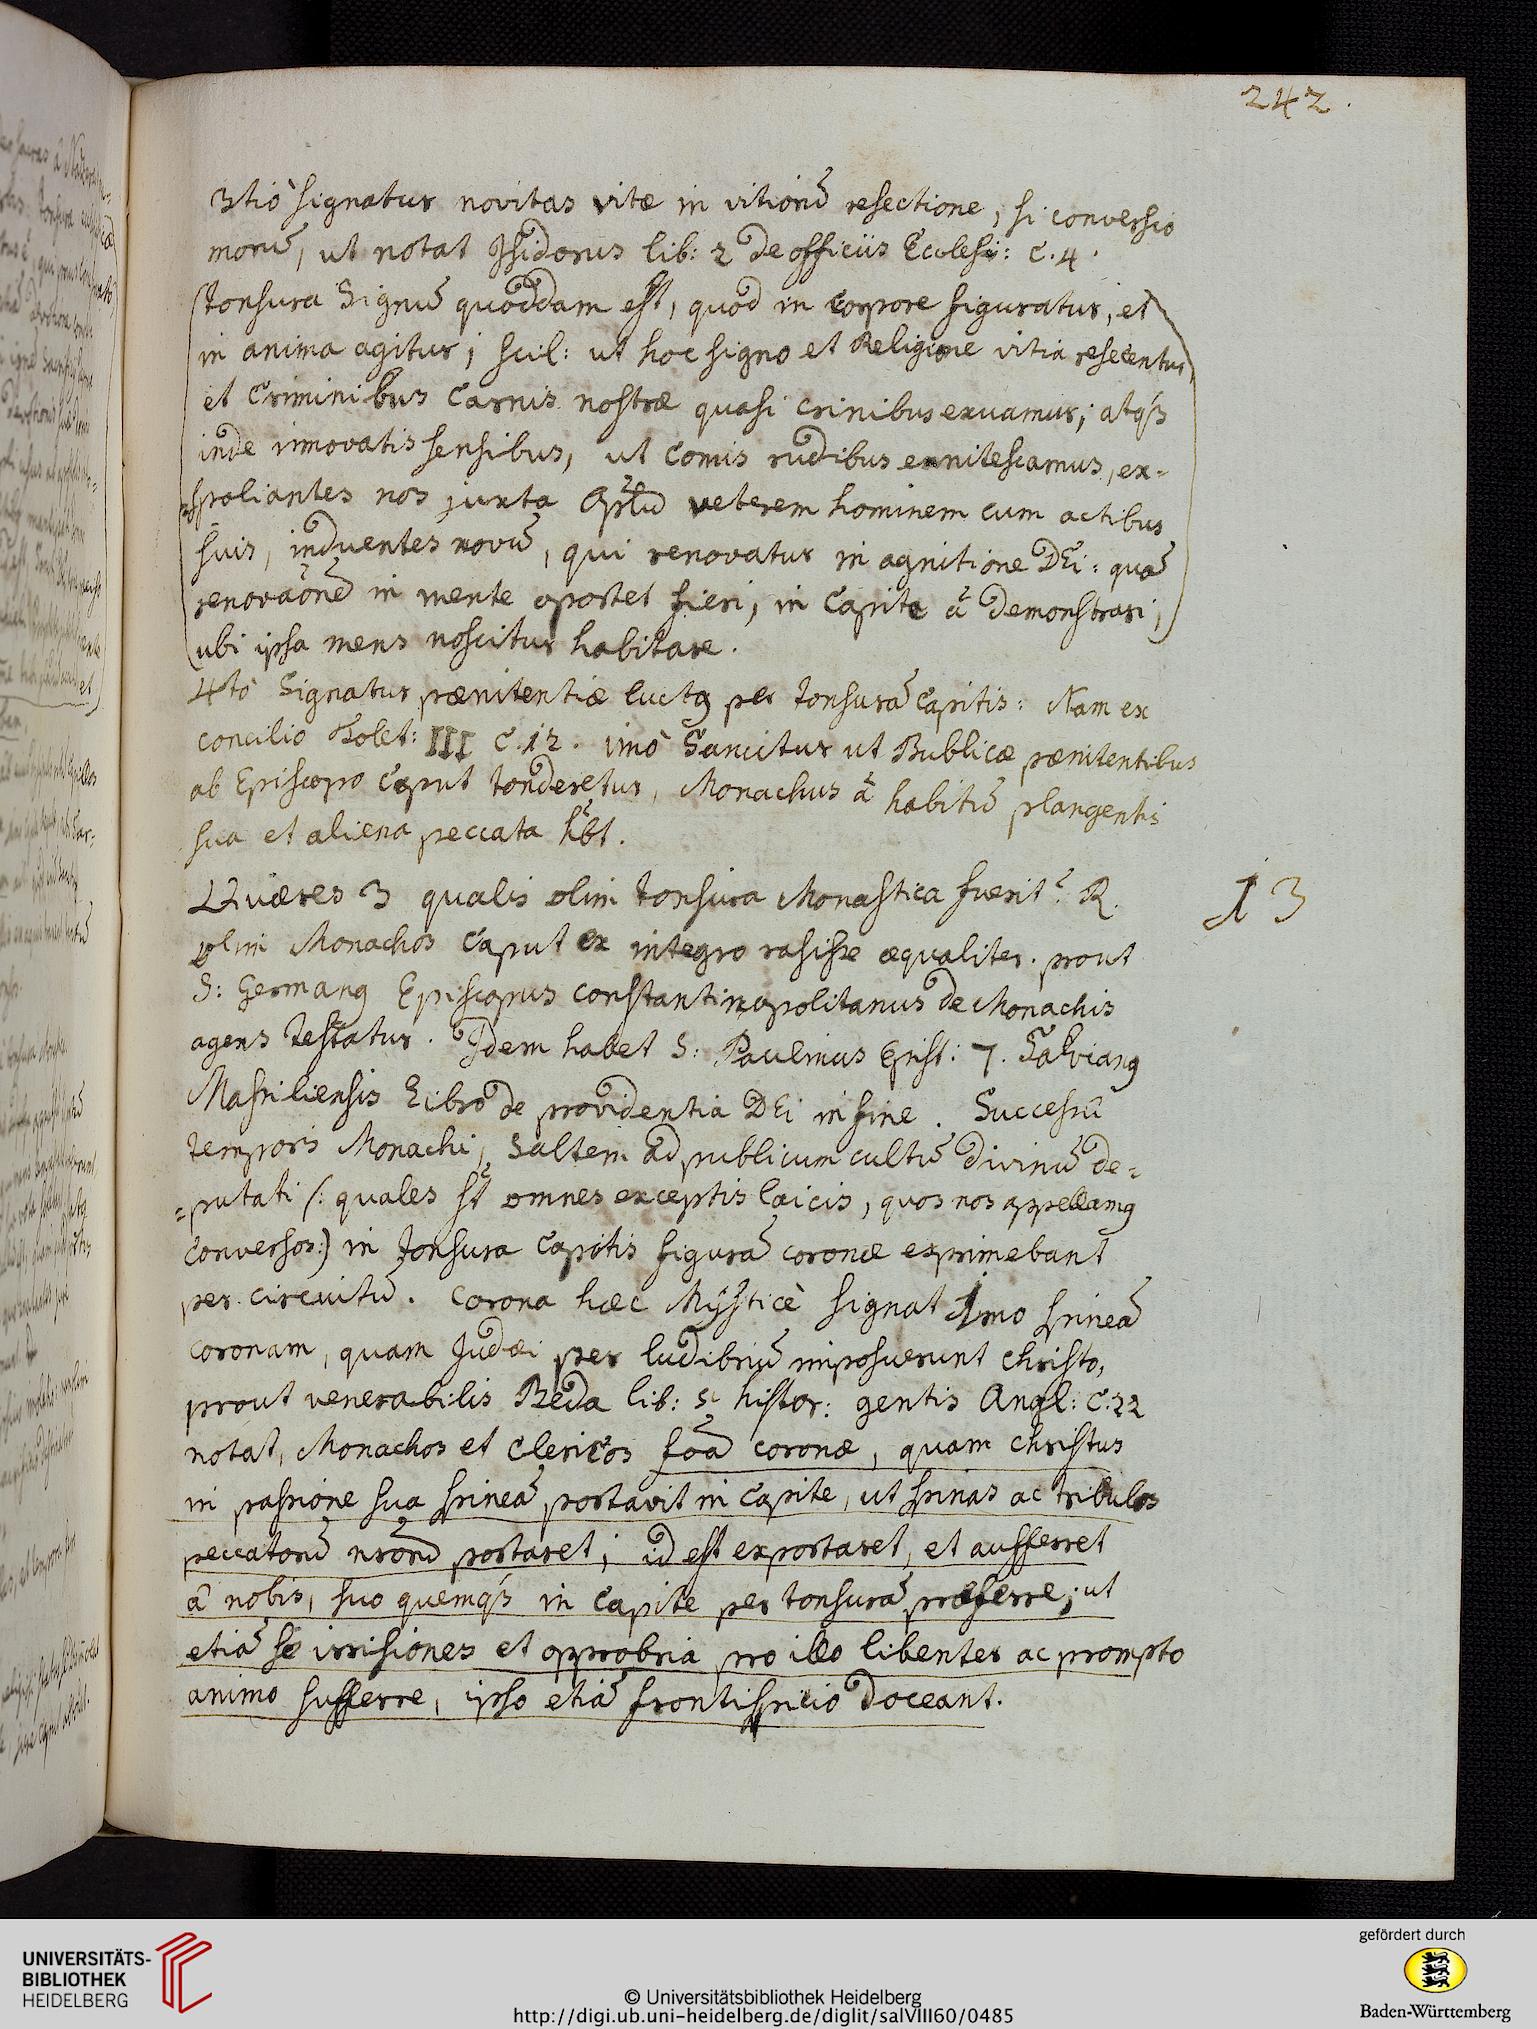 242.
3tiò signatur novitas vitæ in vitiorũ resectione, si conversio
morũ, ut notat Isidorus lib: 2 de officiis Ecclesi: c. 4.
(Tonsura signũ quoddam est, quod in corpore figuratur, et
in anima agitur; scil: ut hoc signo et Religione vitia resecentur,
et criminibus carnis nostræ quasi crinibus exuamur; atqs
inde innovatis sensibus, ut comis rudibus enitescamus, ex-
=spoliantes nos juxta Aplũ veterem hominem cum actibus
suis, induentes novũ, qui renovatur in agnitione DEi: quã
renovaõnẽ in mente oportet fieri, in capite ã demonstrari;
ubi ipsa mens noscitur habitare.)
4tò signatur pænitentiæ luctq per tonsurã capitis: Nam ex
concilio Tolet: III c. 12. imò sancitur ut Publicæ pænitentibus
ab Episcopo caput tonderetur, Monachus ã habitũ plangentis
sua et aliena peccata hbt.
Quæres 3 qualis olim tonsura Monastica fuerit? R.
13
olim Monachos caput ex integro rasisse æqualiter. prout
S: Germanq Episcopus constantinopolitanus de Monachis
agens testatur. Idem habet S: Paulinus Epist: 7. Salvianq
Massiliensis Libro de providentia DEi in fine. Successũ
temporis Monachi, saltem ad publicum cultũ divinũ de=
=putati /: quales st omnes exceptis laicis, quos nos appellamq
conversos:) in tonsura capitis figurã coronæ exprimebant
per circuitũ. Corona hæc Mysticè signat 1mo spineã
coronam, quam Judæi per ludibriũ imposuerunt christo,
prout venerabilis Beda lib: 5 histor: gentis Angl: c: 22
notat, Monachos et clericos foã coronæ, quam christus
in passione sua spineã portavit in capite, ut spinas ac tribulos
peccatorũ nrorũ portaret; id est exportaret, et aufferret
â nobis, suo quemqs in capite per tonsurã præferre; ut
etiã se irrisiones et opprobria pro illo libenter ac prompto
animo sufferre, ipso etiã frontispicio doceant.
UNIVERSITÄTS-
BIBLIOTHEK
HEIDELBERG
© Universitätsbibliothek Heidelberg
http://digi.ub.uni-heidelberg.de/diglit/salVIII60/0485
gefördert durch
Baden-Württemberg